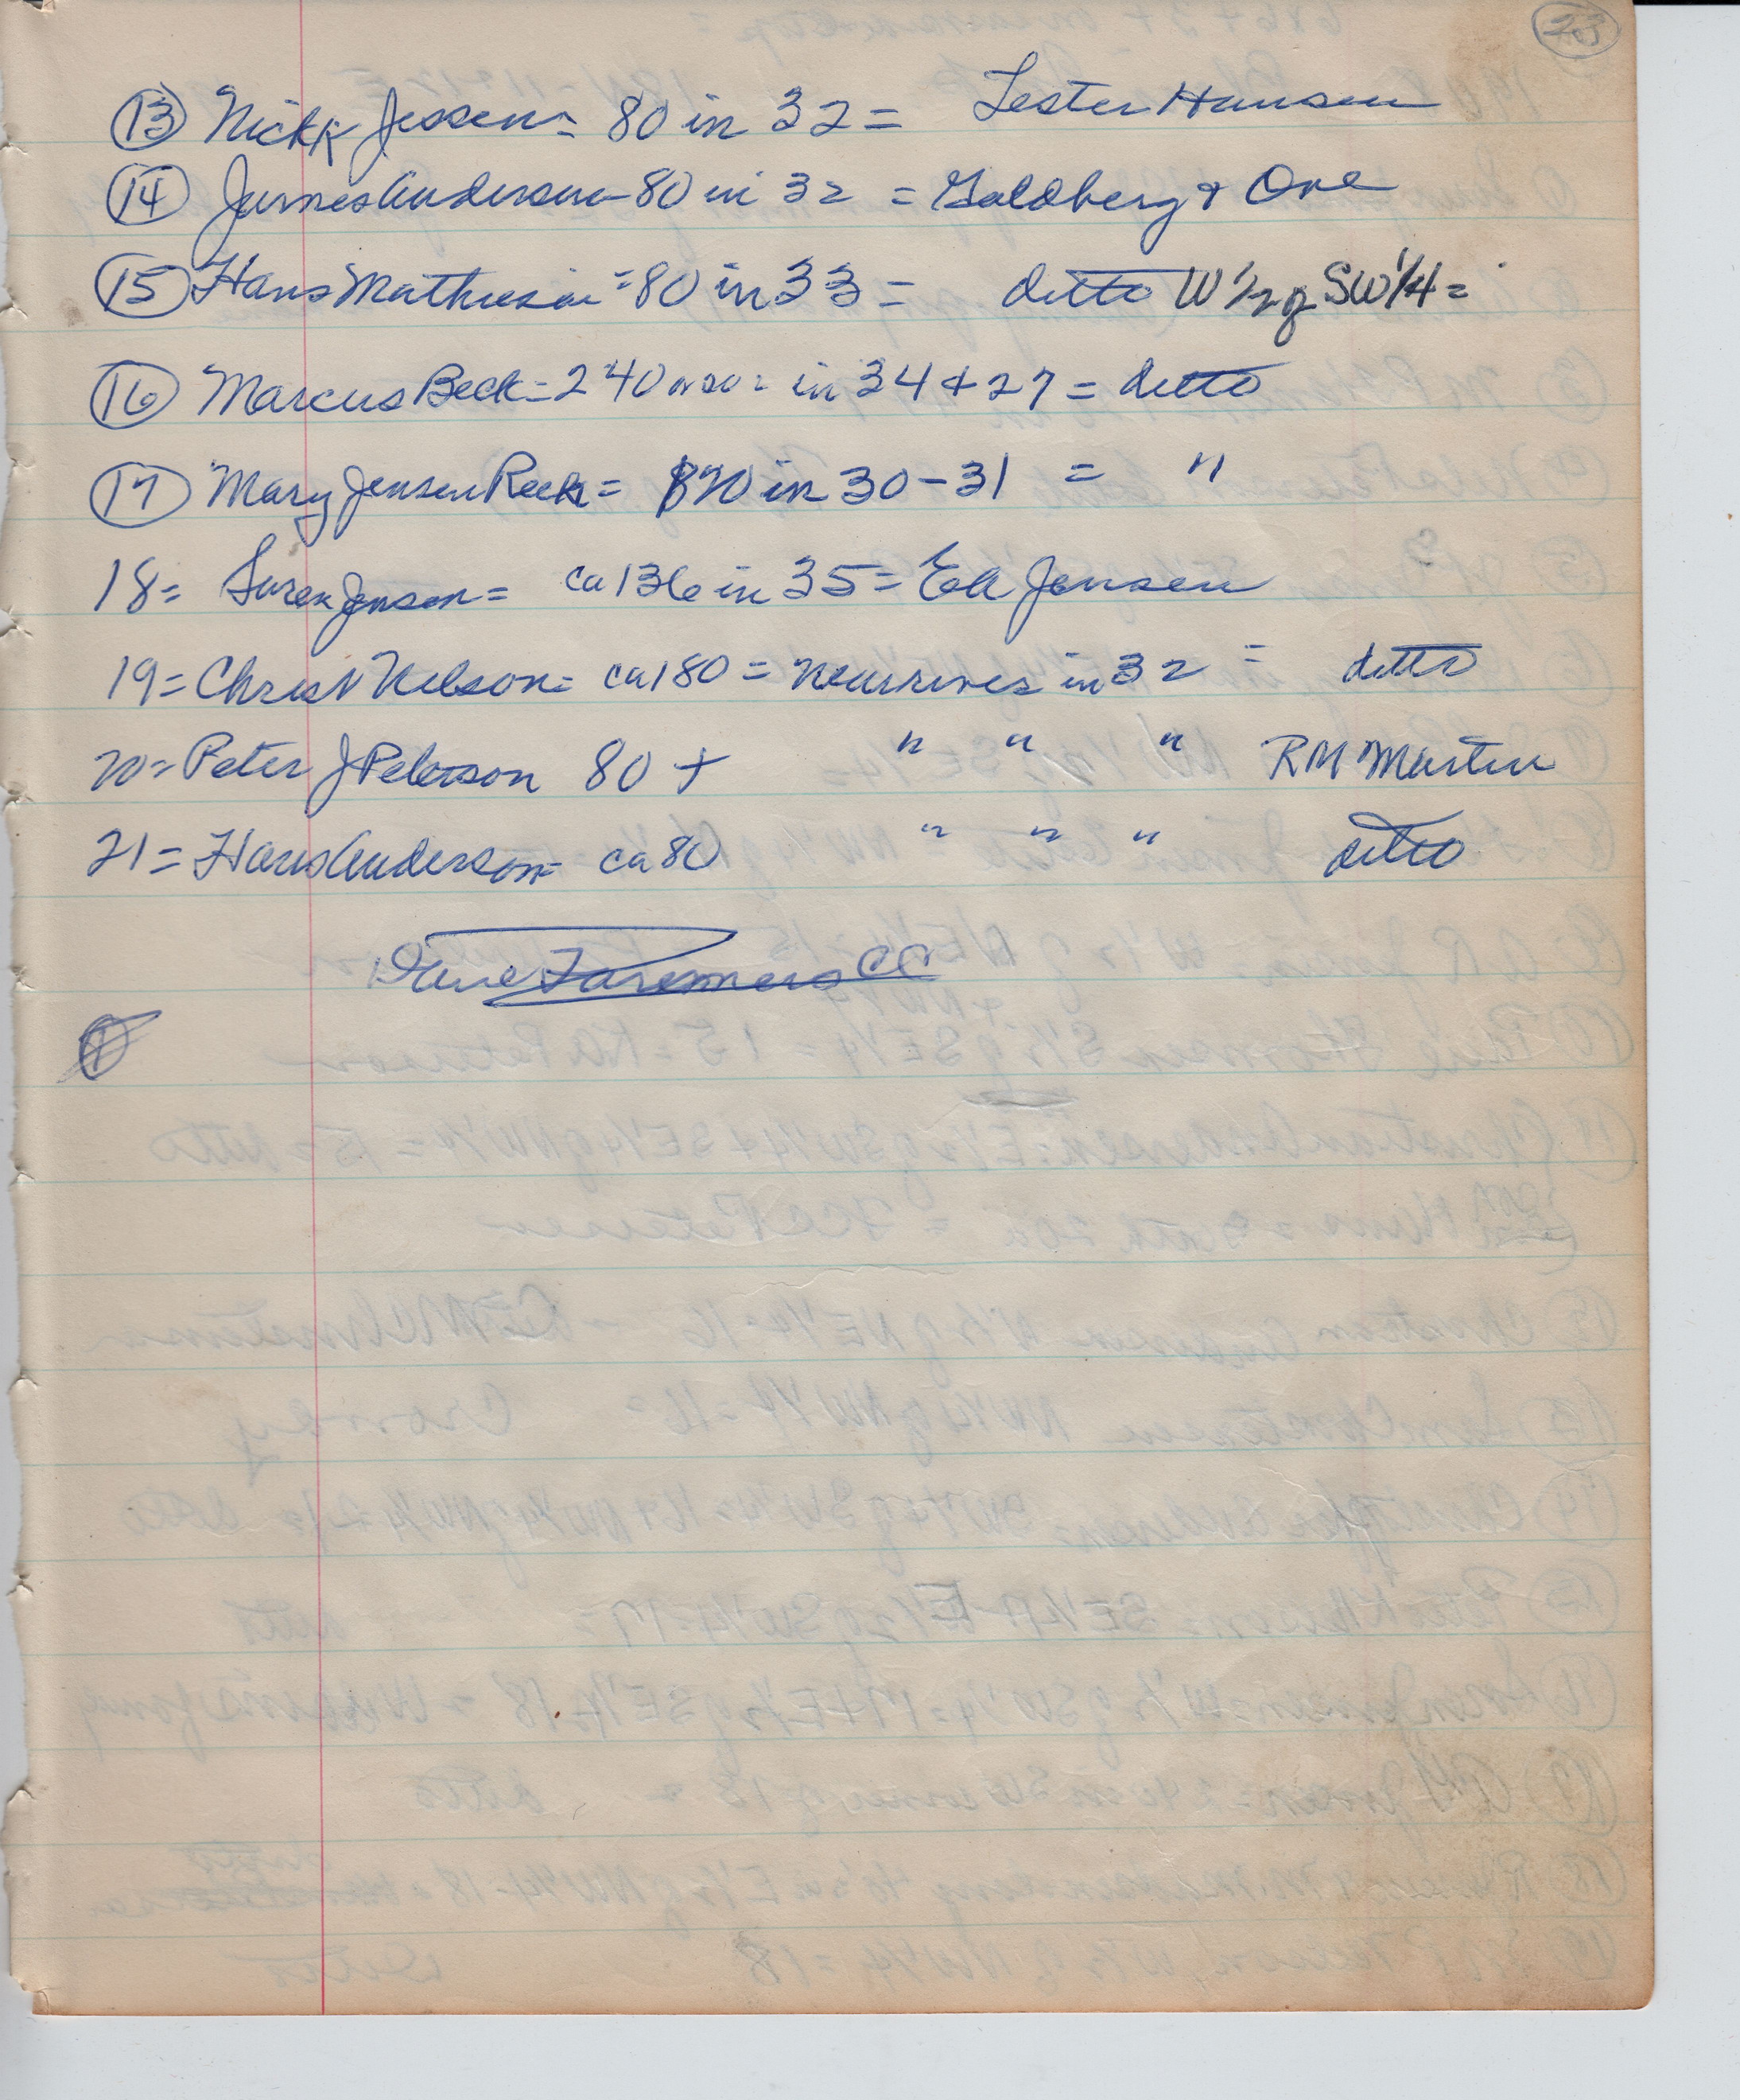 23
13 Nick Jessen = 80 in 32 = Lester Hansen
14 James Anderson - 80 in 32 = Goldberg & Ove
15 Hans Mathiesen = 80 in 33 = ditto W 1/2 of SW 1/4 =
16 Marcus Beck = 240 in 34 + 27 = ditto
17 Mary Jensen = in 30 - 31 = "
18 = Soren Jensen = ca 136 in 35 = Jensen
19 = Christ Nelson = ca 180 = near river in 32 = ditto
20 = Peter J Peterson 80 + " " " RM Martin
21 = Hans Anderson = ca 80 " " " ditto
CC